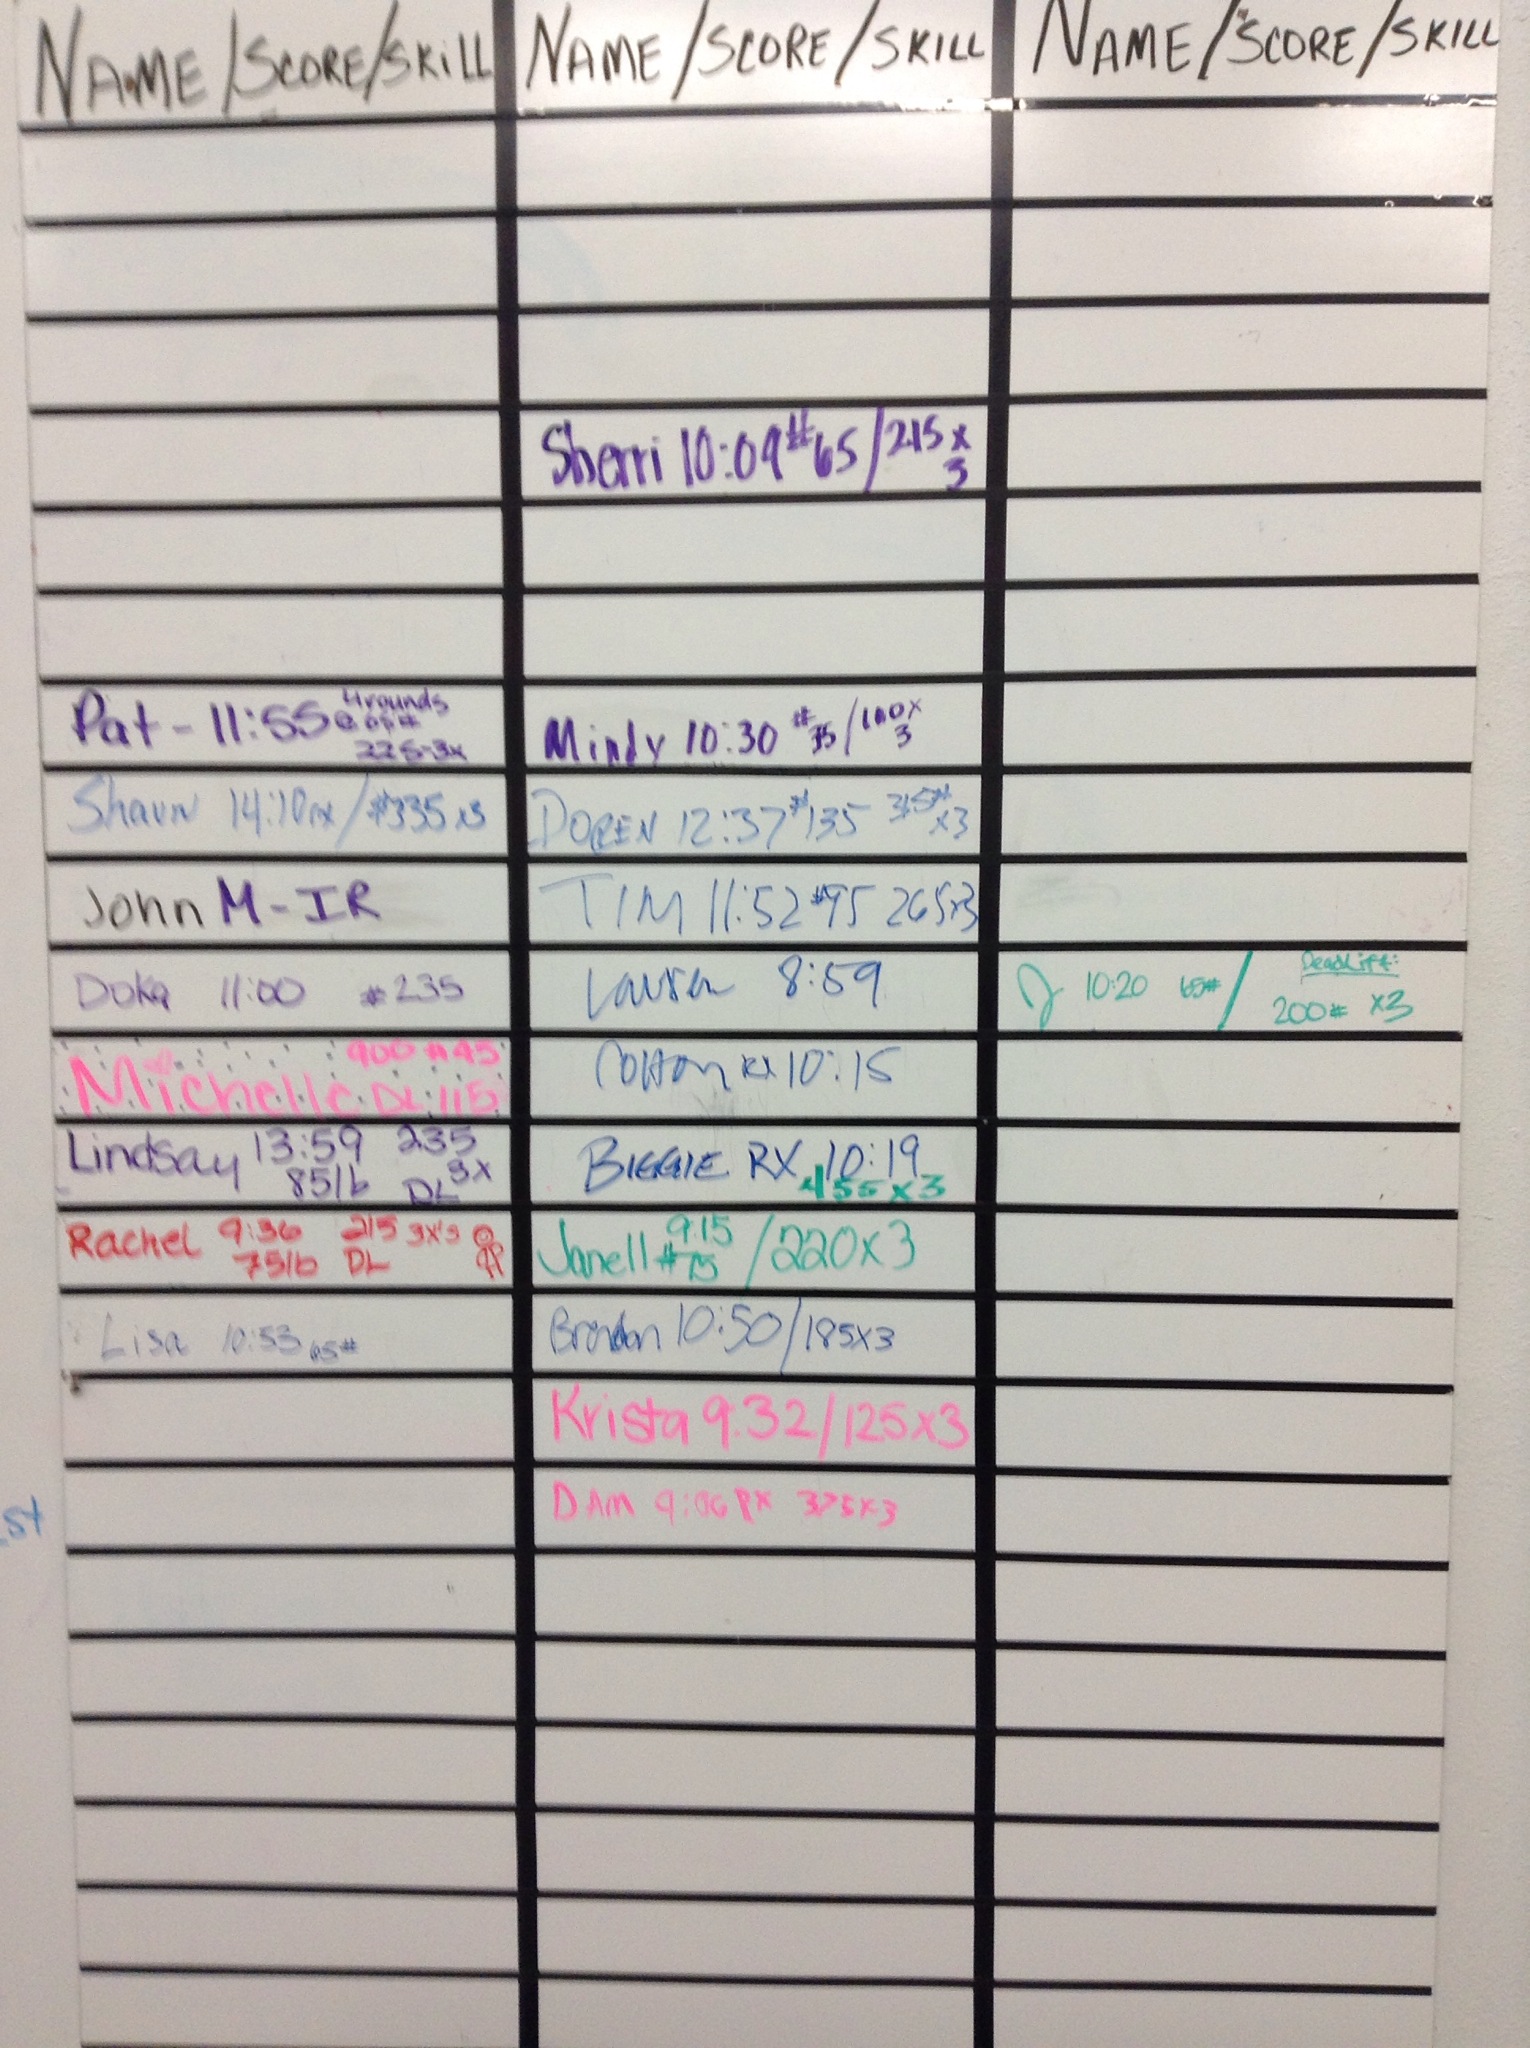 NAME/SCORE/SKILL
NAME/SCORE/SKILL
NAME/SCORE/SKILL
Sherri 10:09 #65/215 x 3
Pat - 11:55 4 rounds
@ 65#
225-3x
Mindy 10:30 #35/100x
3
Shaun 14:10 rx/#335x3
DOREN 12:37 #135 315# x3
John M - IR
TIM 11:52 #95 265x3
Doka 11:00 #235
Lauren 8:59
J 10:20 65# / Deadlift:
200# x3
Michelle 900 #45
DL 115
Colton RX 10:15
Lindsay 13:59 235
85lb DL 3x
BIGGIE RX 10:19
455 x 3
Rachel 9:36 215 3x's
75lb DL
Janell 9:15 /220x3
#75
Lisa 10:53 65#
Brendan 10:50/185x3
Krista 9:32/125x3
DAM 9:06 RX 375x3
st